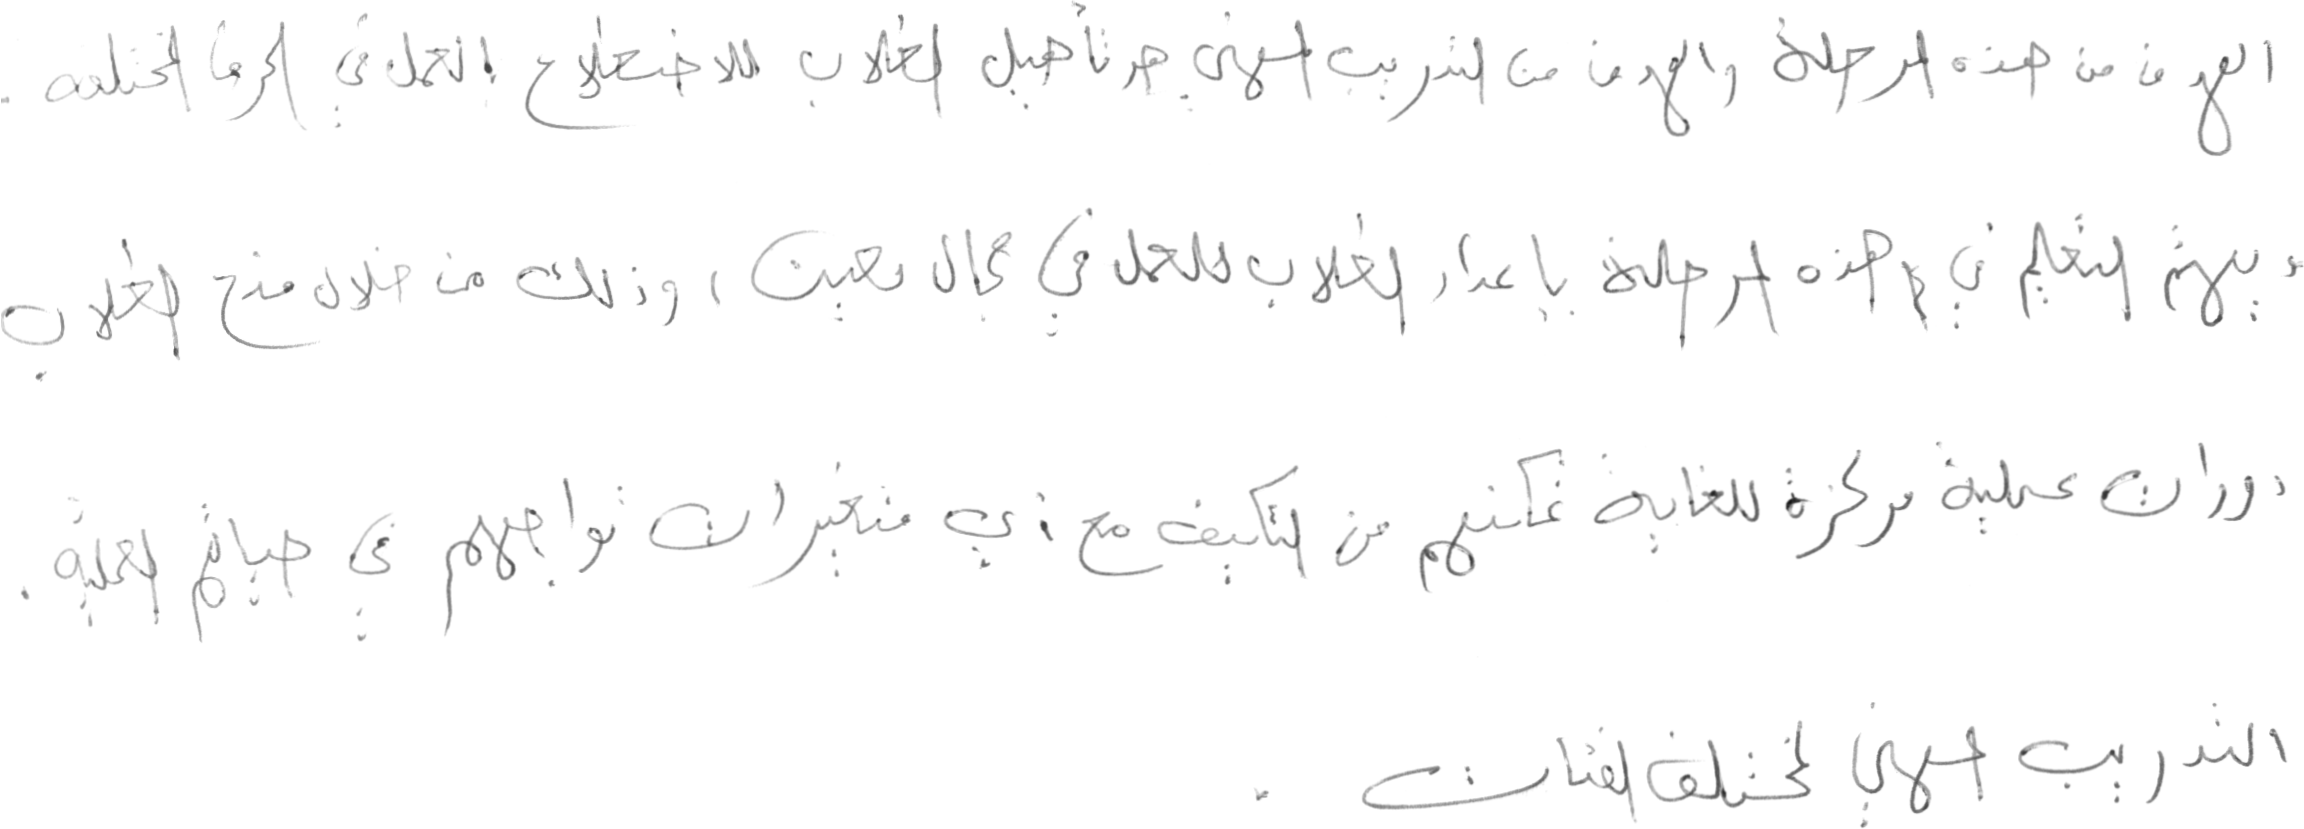 الهدف من هذه المرحلة والهدف من التدريب المهني هو تأهيل الطلاب للاضطلاع بالعمل في الحرف المختلفة .
ويهتم التعليم في هذه المرحلة بإعداد الطلاب للعمل في مجال معين ، وذلك من خلال منح الطلاب
دورات عملية مركزة للغاية تمكنهم من التكيف مع أي متغيرات تواجههم في حياتهم العملية .
التدريب المهني لمختلف الفئات .